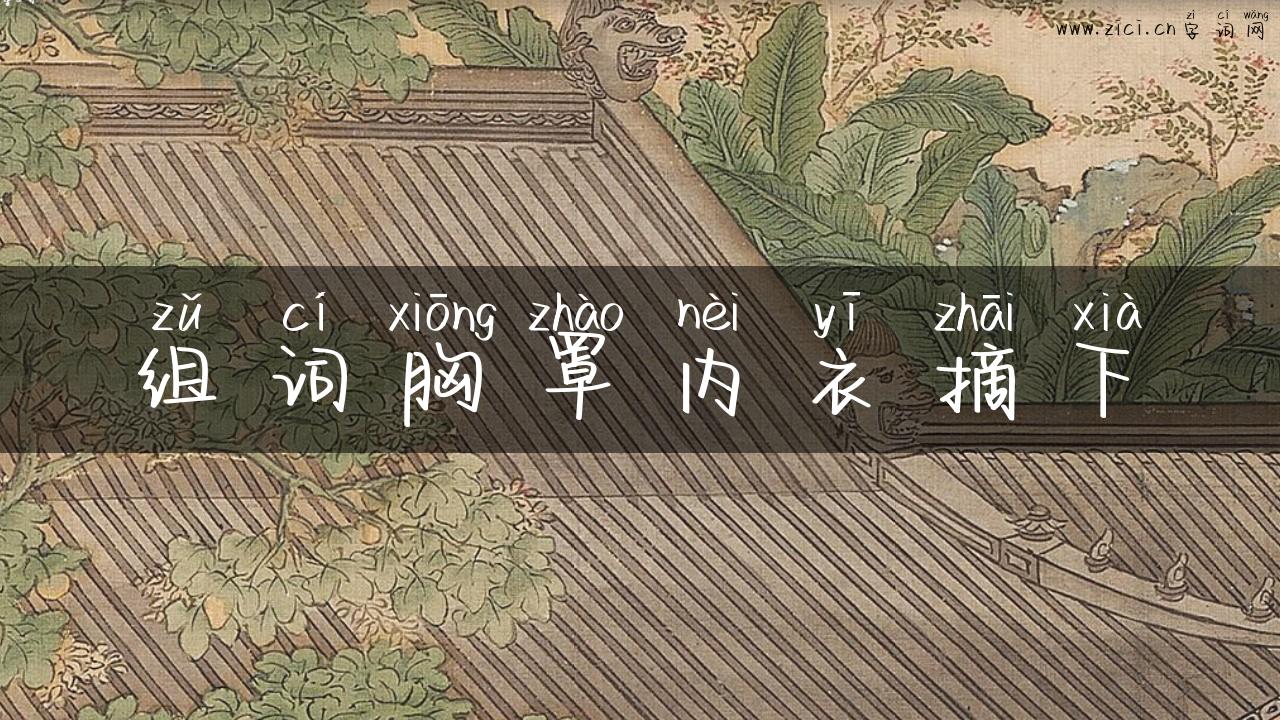 zì cí wǎng
www.zici.cn 字词网
zǔ cí xiōng zhào nèi yī zhāi xià
组词胸罩内衣摘下